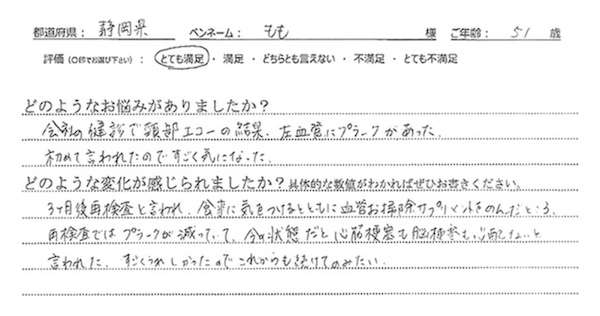 都道府県： 静岡県 ペンネーム： もも 様 ご年齢： 51 歳
評価（○印でお選び下さい）： とても満足 ・ 満足 ・ どちらとも言えない ・ 不満足 ・ とても不満足
どのようなお悩みがありましたか？
会社の健診で頸部エコーの結果、左血管にプラークがあった。
初めて言われたのですごく気になった。
どのような変化が感じられましたか？具体的な数値がわかればぜひお書きください。
3ヶ月後再検査と言われ、食事に気をつけるとともに血管お掃除サプリメントをのんだところ、
再検査ではプラークが減っていて、今の状態だと心筋梗塞も脳梗塞も心配ないと
言われた。すごくうれしかったのでこれからも続けてのみたい。